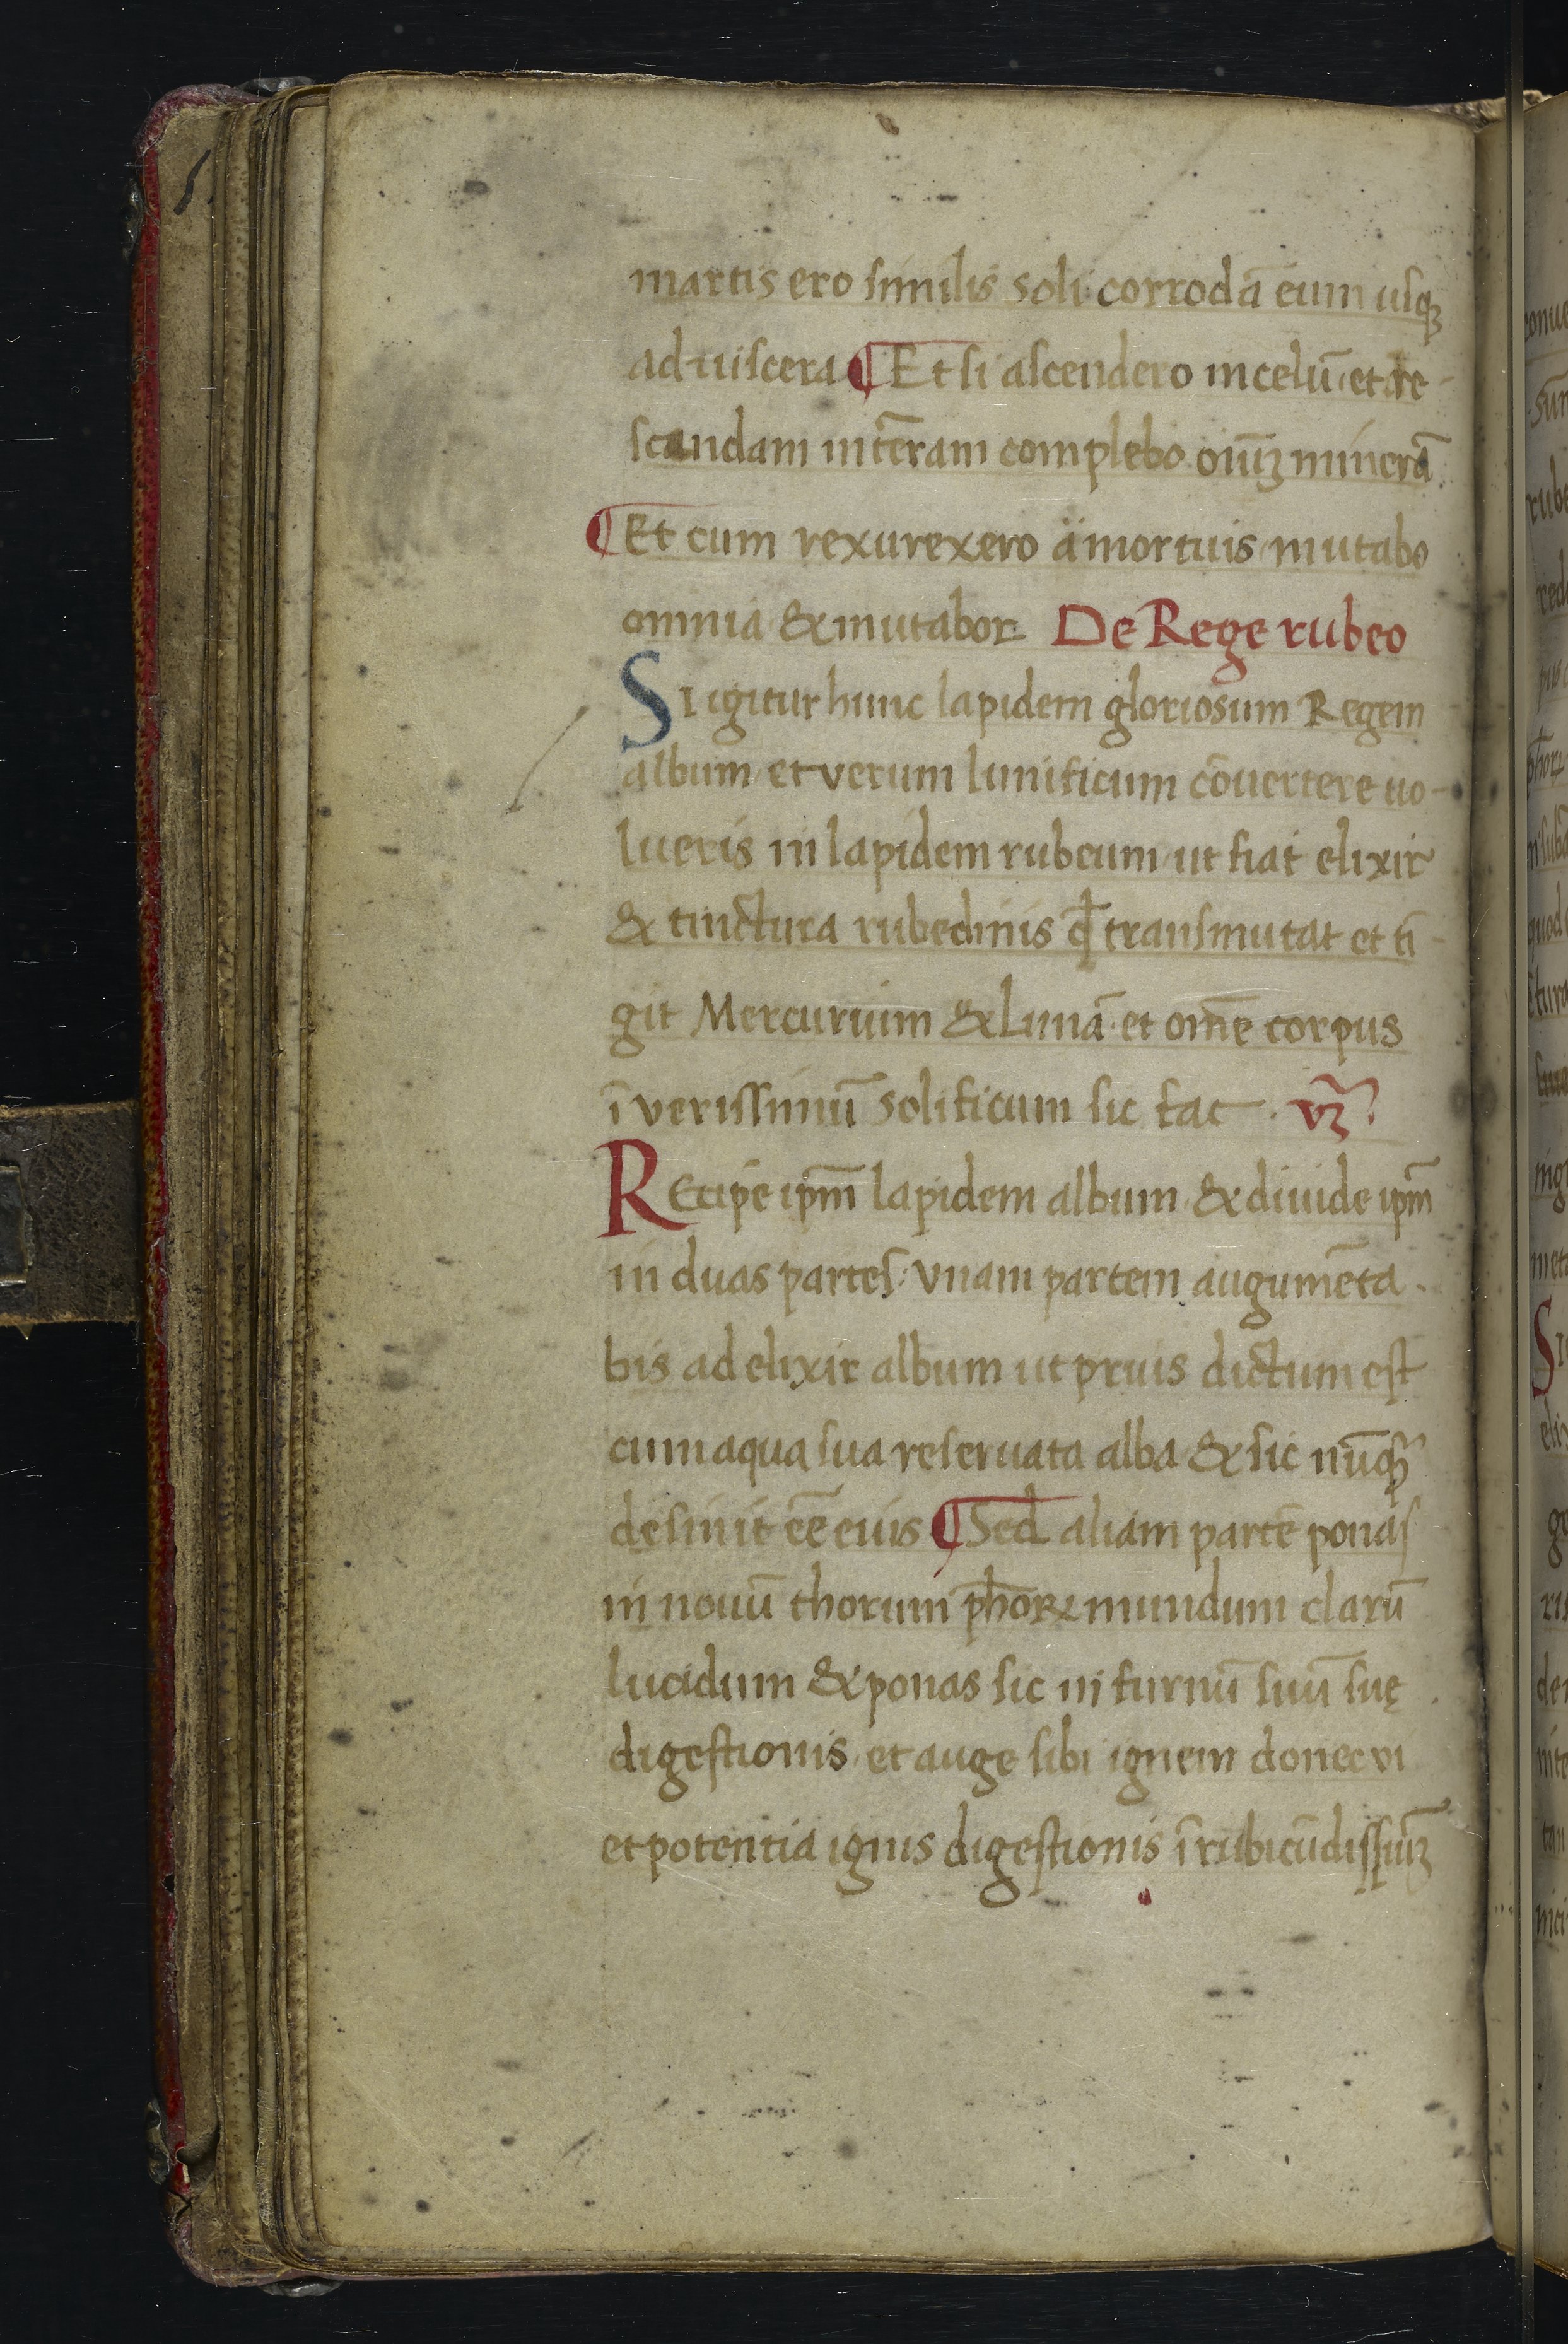 martis ero similis soli corrodã eum usqꝫ
ad uiscera ¶ Et si ascendero in celũ et de-
scandam in terram complebo oiũꝫ minerã
¶ Et cum rexurexero ä mortuis mutabo
omnia & mutabor De Rege rubeo
SI igitur hunc lapidem gloriosum Regem
album et verum lunificum cõuertere uo-
lueris in lapidem rubeum ut fiat elixir
& tinctura rubedinis qđ transmutat et tĩ-
git Mercurium & Lunã et om̃e corpus
ĩ verissimũ solificum sic fac . vꝫ̃
REcipe ip̃m lapidem album & diuide ip̃m
in duas partes: vnam partem augumẽta-
bis ad elixir album ut prius dictum est
cum aqua sua reseruata alba & sic nũqꝫ
desinit eẽ eius ¶ Sed aliam partẽ ponas
in nouũ thorum ph̃oꝝ mundum clarũ
lucidum & ponas sic in furnũ suũ suę
digestionis et auge sibi ignem donec vi
et potentia ignis digestionis ĩ rubicũdissiũꝫ